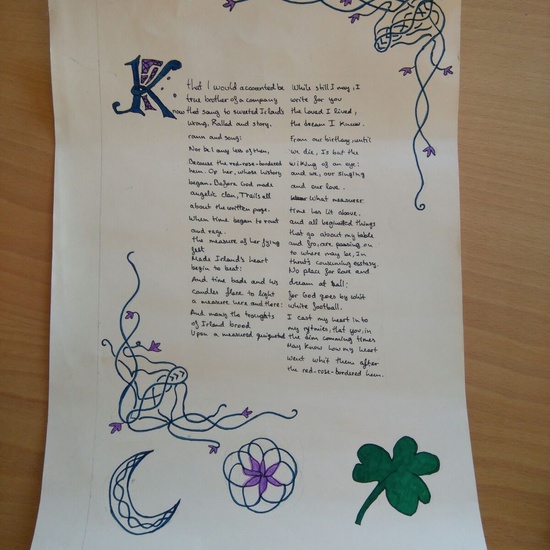 Know
that I would accounted be
true brother of a company
that sang to sweeted Irlands
wrong, Ralled and story.
rann and song:
Nor be I any less of them,
Because the red-rose-bordered
hem. Of her, whose history
began. Before God made
angelic clan, Trails all
about the written page.
When time began to rant
and rage.
the measure of her flying
feet
Made Irland's heart
begin to beat:
And time bade and his
candles flare to light
a measure here and there:
And many the toughts
of Irland brood
Upon a measured quietude
While still I may, I
write for you
the Loved I lived,
the dream I know.
From our birthday, until
we die, Is but the
wiking of an eye:
and we, our singing
and our love.
What measurer
time has lit above.
and all beguided things
that go about my table
and fro, are passing on
to where may be, In
thrut's consuming ecstasy.
No place for love and
dream at Ball:
for God goes by whit
white football.
I cast my heart in to
my rytmies, that you, in
the dim comming times
May Know how my heart
went whit them after
the red-rose-bordered hem.